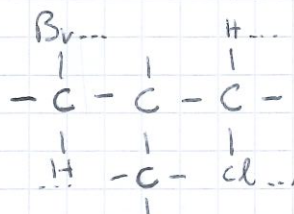 Br... H...
| | |
- C - C - C -
| | |
H... -C- Cl...
|